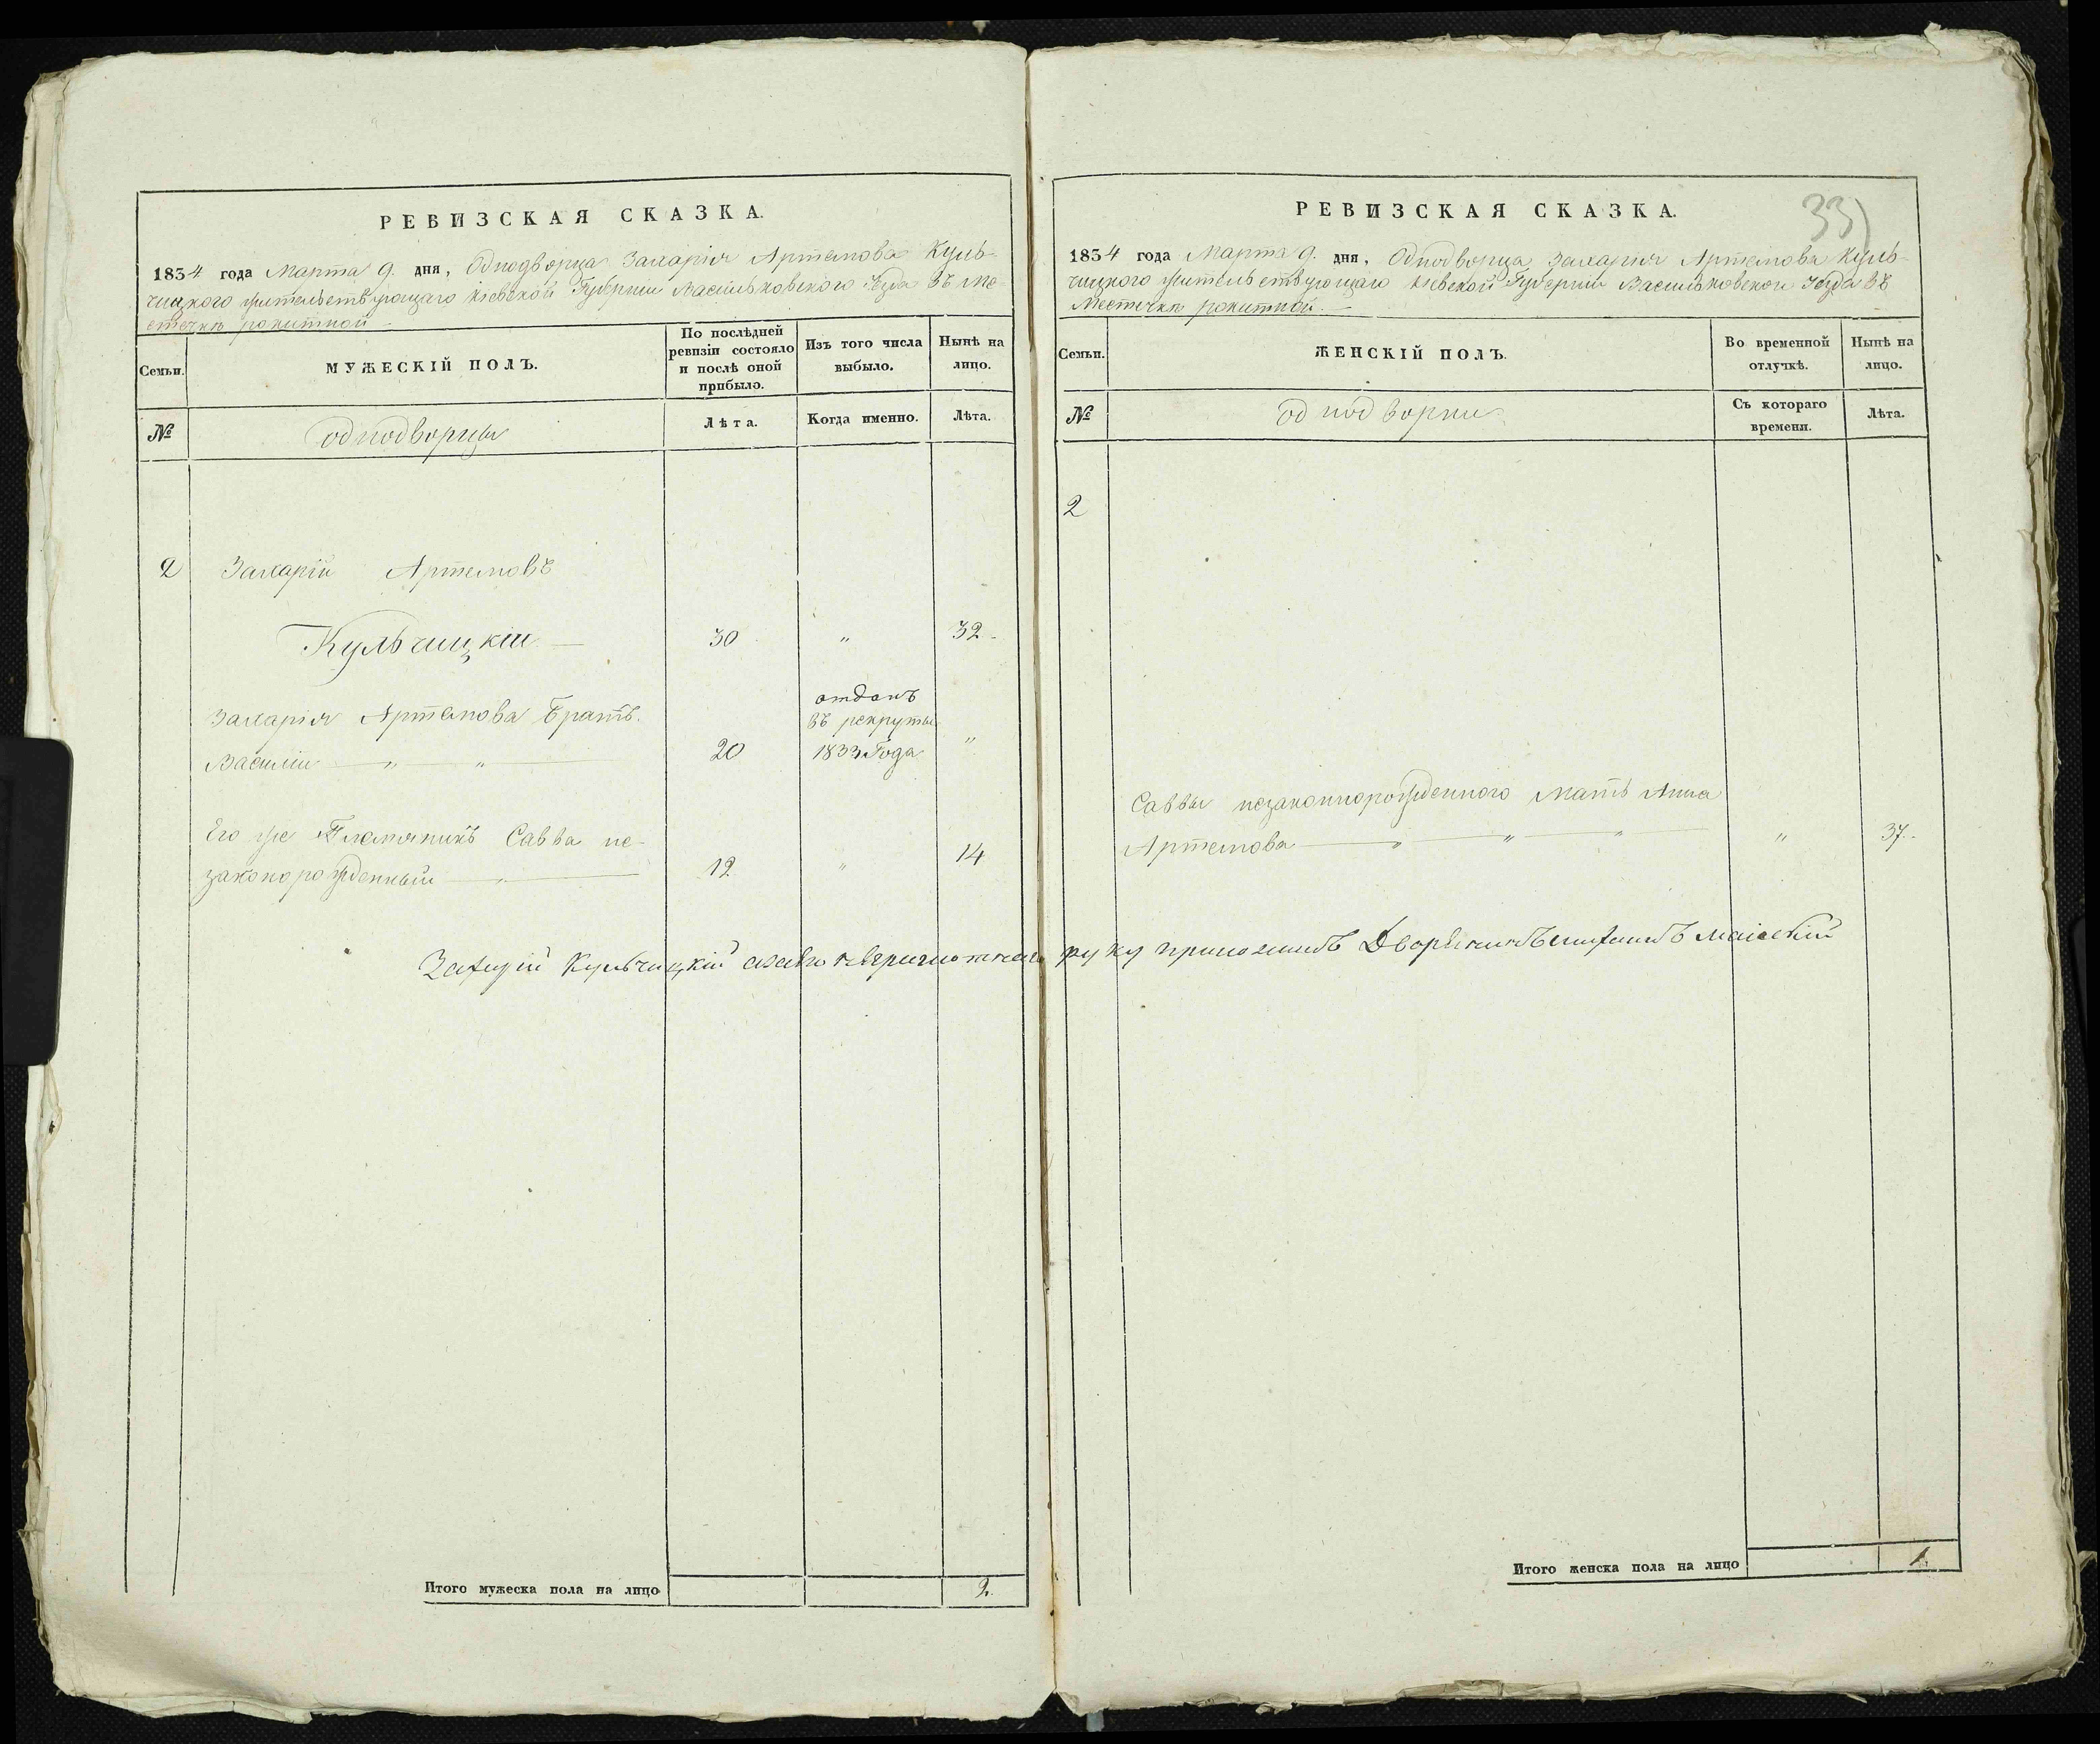 РЕВИЗСКАЯ СКАЗКА.
1834 года Марта 9. дня, Однодворца Захарія Артемова Куль-
чицкого жительствующаго Кіевской Губерніи Васильковского Уезда въ Ме
стечкѣ рокитной
Семьи.
МУЖЕСКІЙ ПОЛЪ.
По послѣдней
ревизіи состояло
и послѣ оной
прибыло.
Изъ того числа
выбыло.
Нынѣ на
лицо.
№
однодворцы
Лѣта.
Когда именно.
Лѣта.
2 Захарій Артемовъ
Кульчицкіи 30 " 32
Захарія Артемова Братъ
Василіи " " 20 отданъ
въ рекруты
1833 Года "
Его же Племяникъ Савва не-
законорожденный " 12 " 14
Итого мужеска пола на лицо 2.
РЕВИЗСКАЯ СКАЗКА.
33
1834 года Марта 9. дня, Однодворца Захарія Артемова Куль-
чицкого жительствующаго Кіевской Губерніи Васильковскои Уезда въ
Местечкѣ рокитной.
Семьи.
ЖЕНСКІЙ ПОЛЪ.
Во временной
отлучкѣ.
Нынѣ на
лицо.
№
однодворки
Съ котораго
времени.
Лѣта.
2
Саввы незаконнорожденного Мать Анна
Артемова " " " " 37.
Кульчицкій руку приложилъ Дворянинъ
Итого женска пола на лицо 1.